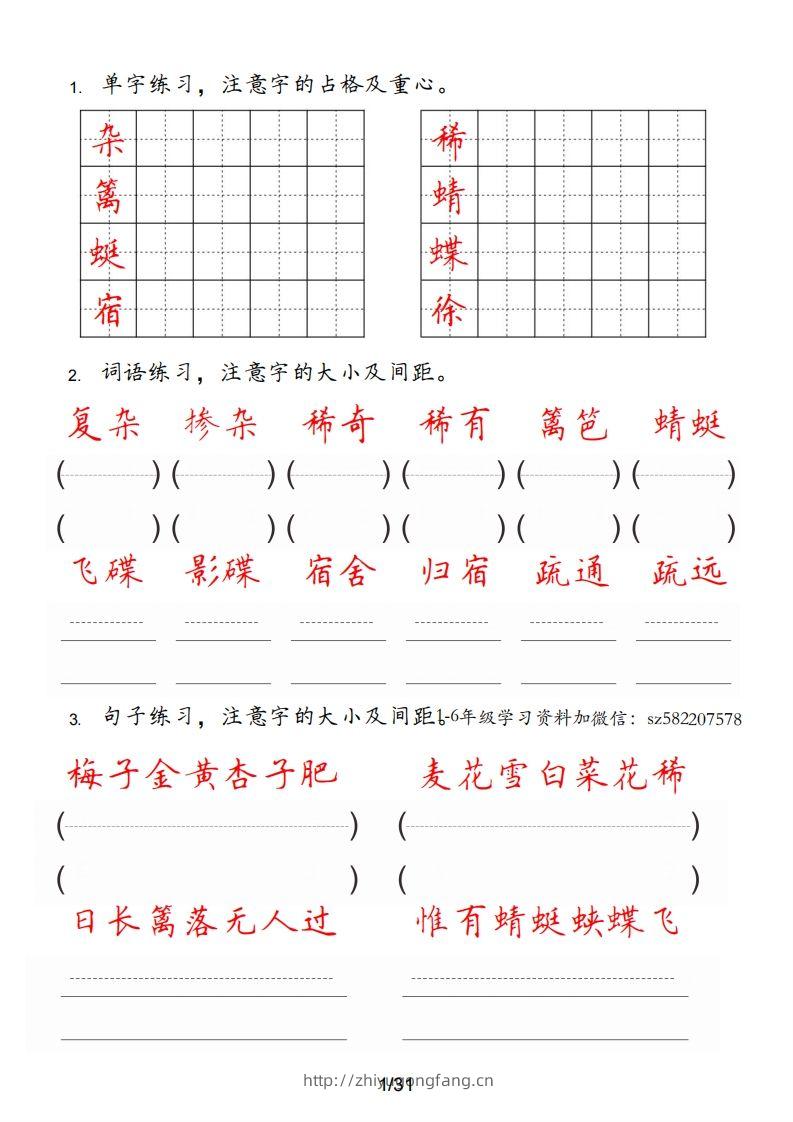 1. 单字练习，注意字的占格及重心。
杂 稀
篱 蜻
蜓 蝶
宿 徐
2. 词语练习，注意字的大小及间距。
复杂 掺杂 稀奇 稀有 篱笆 蜻蜓
飞碟 影碟 宿舍 归宿 疏通 疏远
3. 句子练习，注意字的大小及间距。1-6年级学习资料加微信：sz582207578
梅子金黄杏子肥 麦花雪白菜花稀
日长篱落无人过 惟有蜻蜓蛱蝶飞
http://zhiyugongfang.cn
1/31